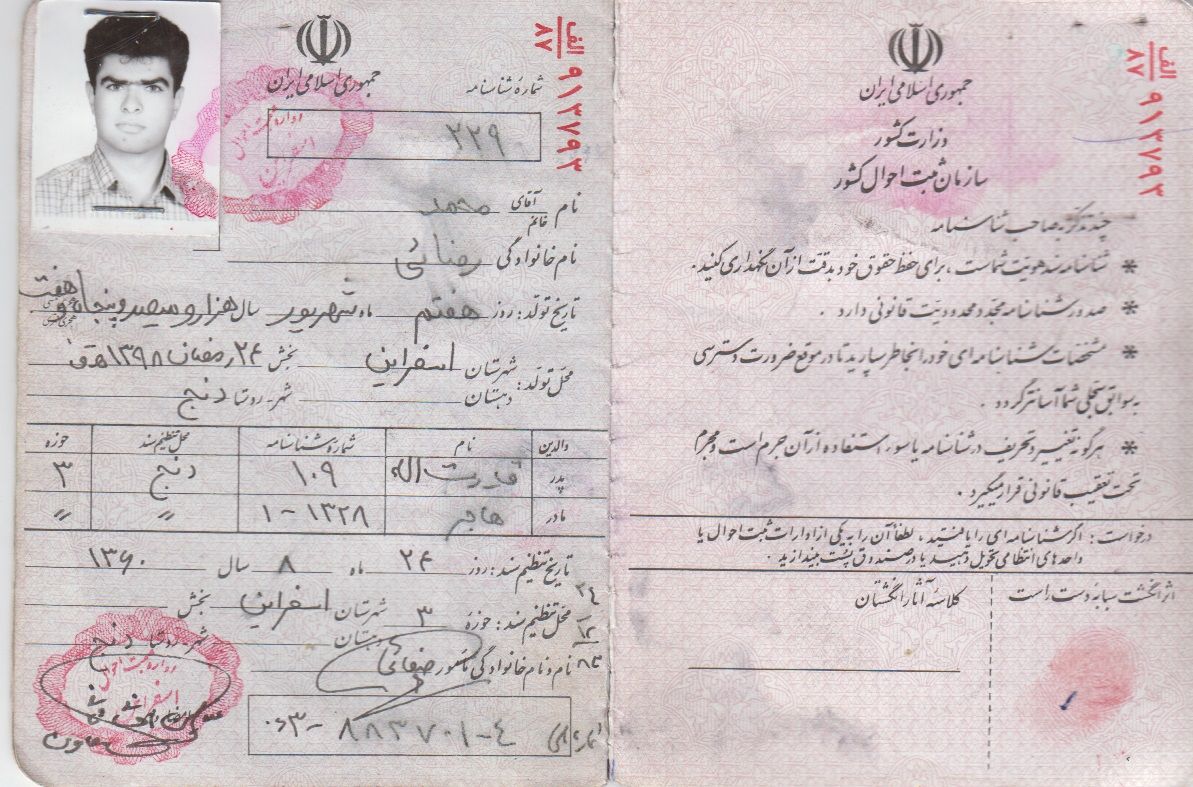 جمهوری اسلامی ایران
وزارت کشور
سازمان ثبت احوال کشور
الف
۸۷
۹۱۳۷۹۳
چند تذکر به صاحب شناسنامه
* شناسنامه سند هویت شماست ، برای حفظ حقوق خود بدقت از آن نگهداری کنید .
* صدور شناسنامه مجدد محدودیت قانونی دارد .
* مشخصات شناسنامه ای خود را بخاطر بسپارید تا در موقع ضرورت دسترسی
به سوابق سجلی شما آسانتر گردد .
* هرگونه تغییر و تحریف در شناسنامه یا سوء استفاده از آن جرم است و مجرم
تحت تعقیب قانونی قرار میگیرد .
درخواست : اگر شناسنامه ای را یافتید ، لطفاً آن را به یکی از ادارات ثبت احوال یا
واحدهای انتظامی تحویل دهید یا در صندوق پست بیندازید .
اثر انگشت سبابه دست راست
کلاسه آثار انگشتان
الف
۸۷
۹۱۳۷۹۳
جمهوری اسلامی ایران
شماره شناسنامه
۲۲۹
اداره ثبت احوال
اسفراین
نام آقای خانم محمد
نام خانوادگی رضائی
تاریخ تولد : روز هفتم ماه شهریور سال هزار و سیصد و پنجاه و هفت
هجری شمسی
محل تولد : شهرستان اسفراین بخش ۲۴ رمضان ۱۳۹۸ ه‍ ق
دهستان شهر - روستا دنج
والدین نام شماره شناسنامه محل تنظیم سند حوزه
پدر قدرت اله ۱۰۹ دنج ۳
مادر هاجر ۱-۱۳۲۸〃 〃
تاریخ تنظیم سند : روز ۲۴ ماه ۸ سال ۱۳۶۰
محل تنظیم سند : حوزه ۳ شهرستان اسفراین بخش
دهستان شهر - روستا دنج
نام و نام خانوادگی مامور صفائی
۲۴
۱۲
۸۳
۰۶۳-۸۸۳۷۰۱-۴
اداره ثبت احوال
اسفراین